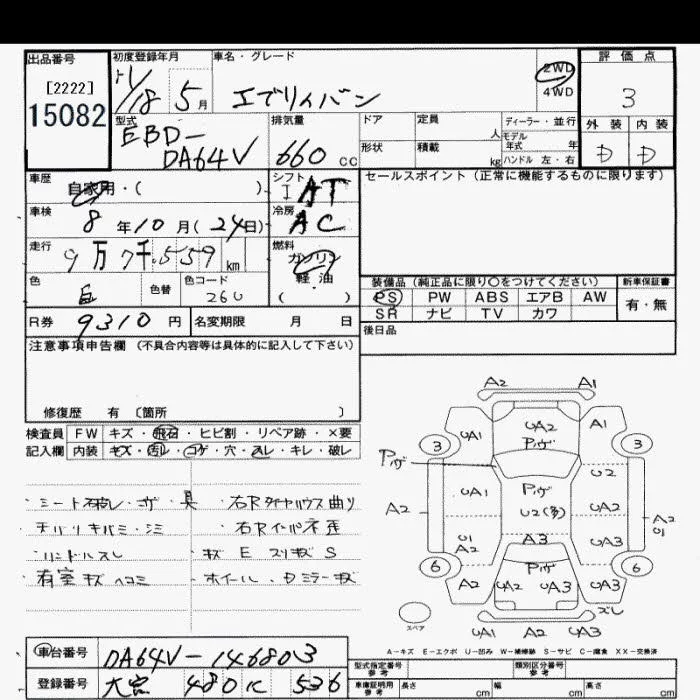 出品番号 初度登録年月 車名・グレード 評価点
[2222]
15082
H/18 5月 エブリィバン 2WD 4WD 3
型式 排気量 ドア 定員 人 ディーラー・並行 外装 内装
EBD-DA64V 660 cc 形状 積載 kg モデル年式 年 ハンドル 左・右 D D
車歴 自家用・( ) シフト I AT セールスポイント(正常に機能するものに限ります)
車検 8年10月(24日) 冷房 AC
走行 9万7千559km 燃料 ガソリン 軽・油 ( )
色 白 色替 色コード 26U 装備品(純正品に限り○をつけてください) 新車保証書
PS PW ABS エアB AW 有・無
SR ナビ TV カワ
R券 9310円 名変期限 月 日 後日品
注意事項申告欄(不具合内容等は具体的に記入して下さい)
修復歴 有〔箇所 〕
検査員 FW キズ・飛石・ヒビ割・リペア跡・×要
記入欄 内装 キズ・汚レ・コゲ・穴・スレ・キレ・破レ
・右Rタイヤハウス曲り
・右Rインパネ歪
・キズ E スリキズ S
・有室キズ ヘコミ ・ホイール、Dミラーキズ
A2 A1
UA1 UA2 A1
3 Pハゲ 3
Pハゲ U2
UA1 Pハゲ
A2 U2(多) A2 U1
U1 A2 A3 UA3
6 Pハゲ 6
A2 UA2 UA3 UA3
スペア ズレ
UA1 A2 UA3
A-キズ E-エクボ U-凹み W-補修跡 S-サビ C-腐食 XX-交換済
車台番号 DA64V-146803
登録番号 大宮 480 に 536
型式指定番号 参考 類別区分番号 参考
車庫証明用 参考 長さ cm 幅 cm 高さ cm